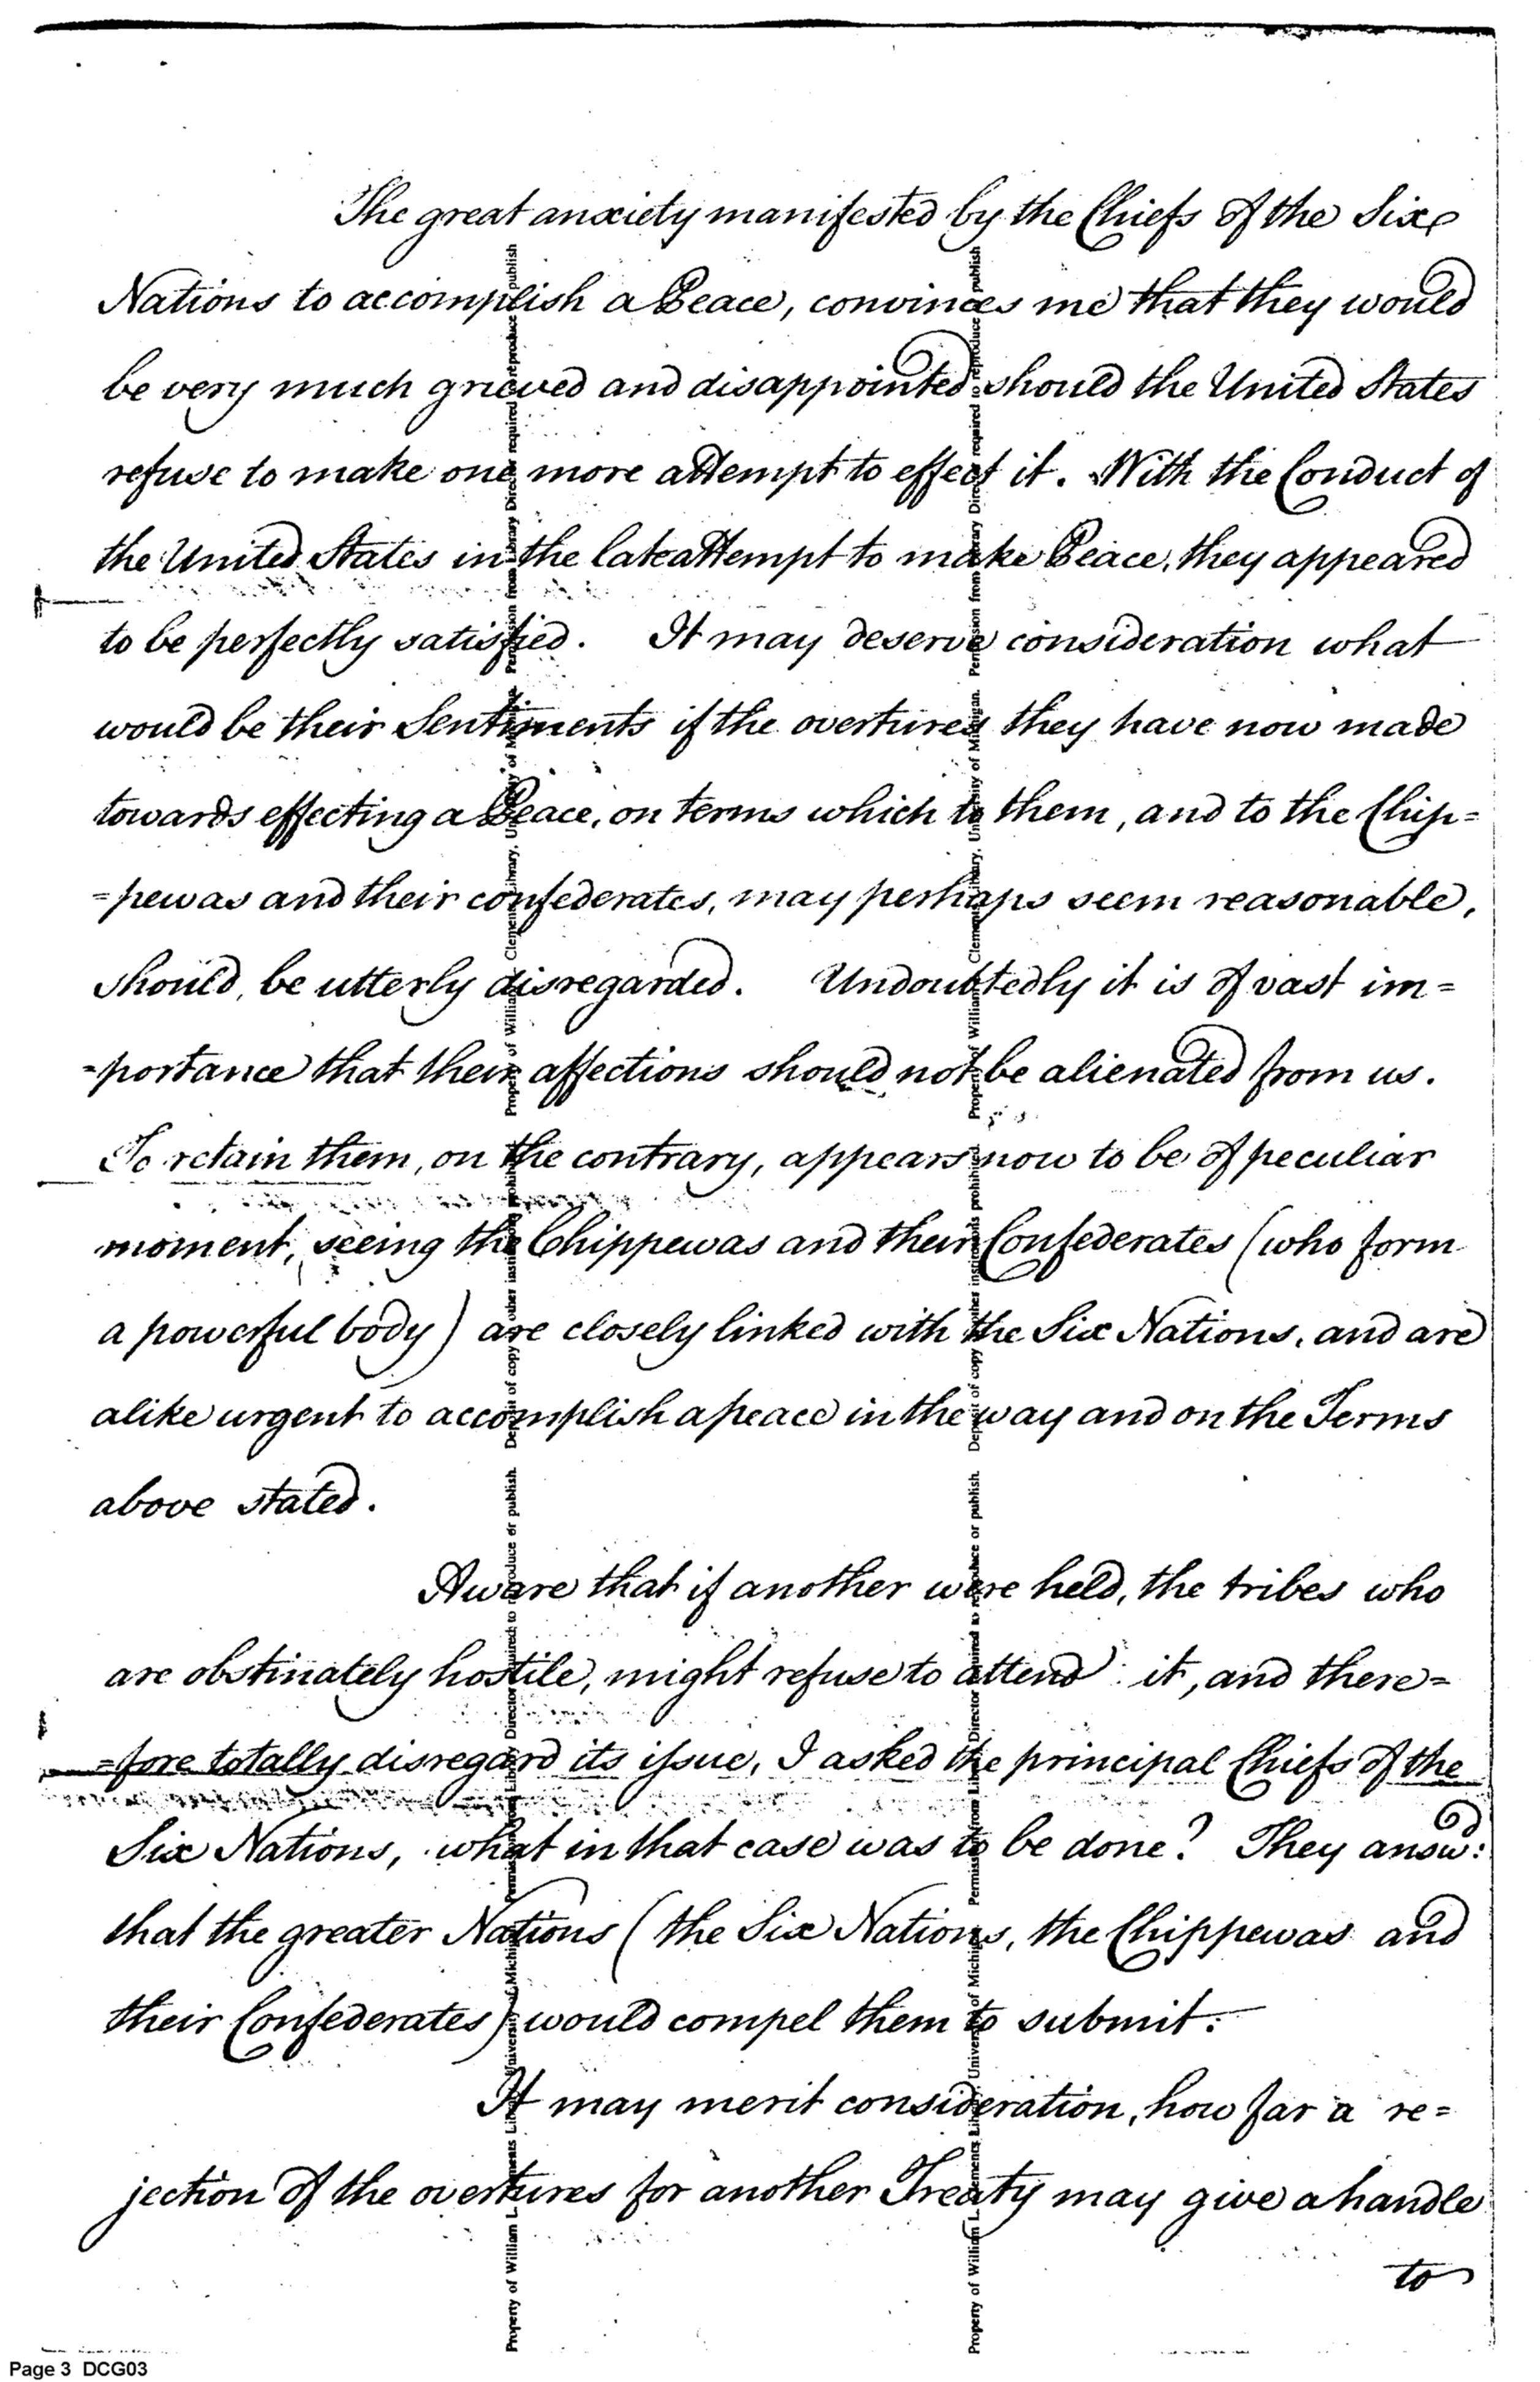 The great anxiety manifested by the Chiefs of the Six
Nations to accomplish a Peace, convinces me that they would
be very much grieved and disappointed should the United States
refuse to make one more attempt to effect it. With the Conduct of
the United States in the late attempt to make Peace, they appeared
to be perfectly satisfied. It may deserve consideration what
would be their Sentiments if the overtures they have now made
towards effecting a Peace, on terms which to them, and to the Chip=
=pewas and their confederates, may perhaps seem reasonable,
should, be utterly disregarded. Undoubtedly it is of vast im=
=portance that their affections should not be alienated from us.
To retain them, on the contrary, appears now to be of peculiar
moment, seeing the Chippewas and their Confederates (who form
a powerful body) are closely linked with the Six Nations, and are
alike urgent to accomplish a peace in the way and on the Terms
above stated.
Aware that if another were held, the tribes who
are obstinately hostile, might refuse to attend it, and there=
=fore totally disregard its issue, I asked the principal Chiefs of the
Six Nations, what in that case was to be done? They answd:
that the greater Nations (the Six Nations, the Chippewas and
their Confederates) would compel them to submit.
It may merit consideration, how far a re=
jection of the overtures for another Treaty may give a handle
to
Property of William L. Clements Library, University of Michigan. Permission from Library Director required to reproduce or publish. Deposit of copy other institutions prohibited.
Property of William L. Clements Library, University of Michigan. Permission from Library Director required to reproduce or publish
Property of William L. Clements Library, University of Michigan. Permission from Library Director required to reproduce or publish. Deposit of copy other institutions prohibited.
Property of William L. Clements Library, University of Michigan. Permission from Library Director required to reproduce or publish
Page 3 DCG03